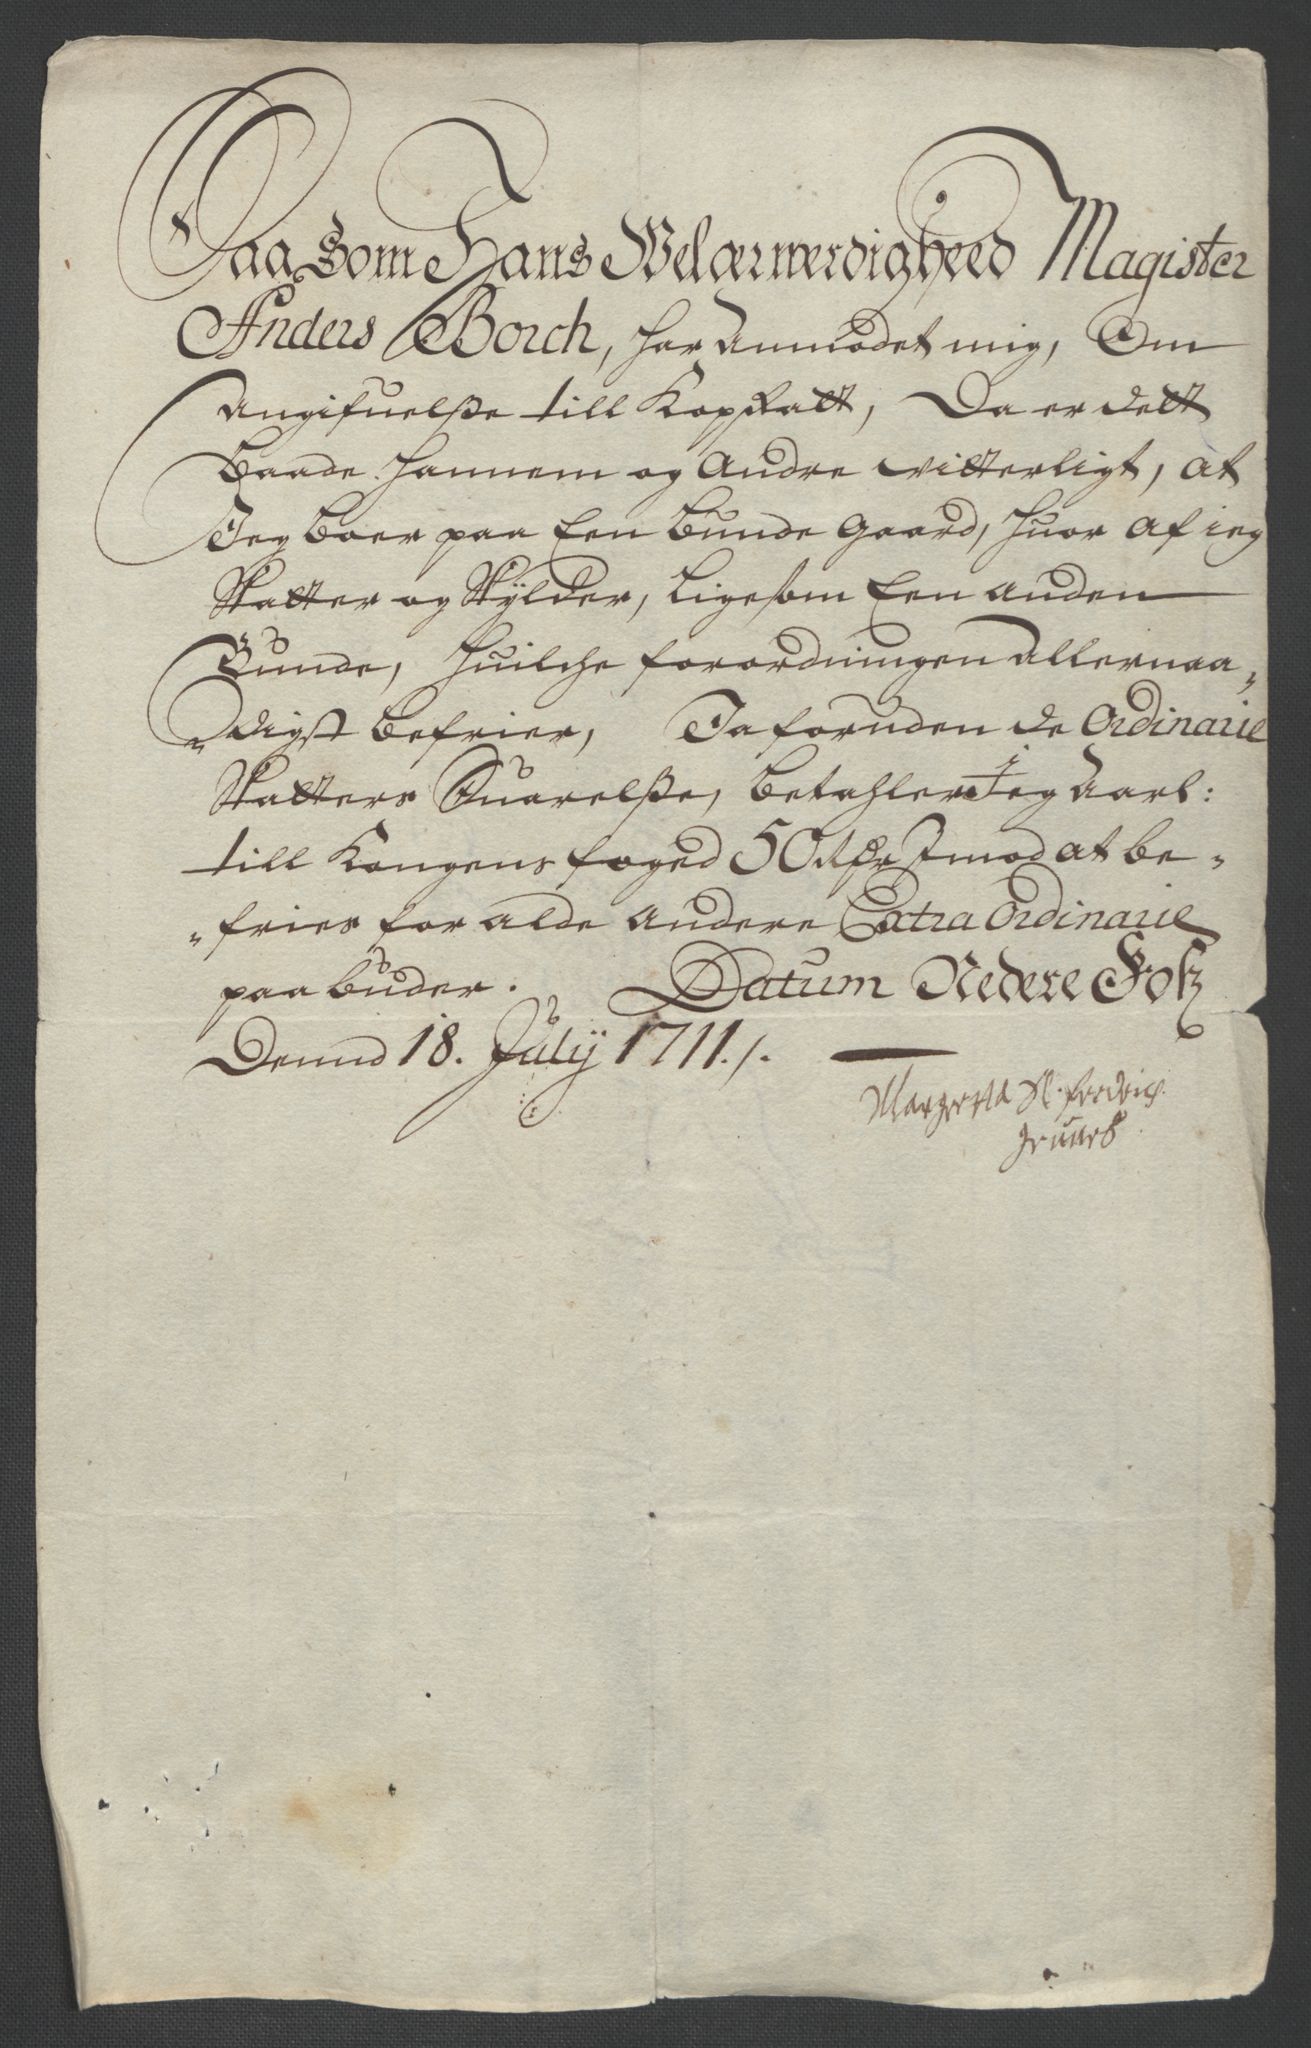 Saa Som Hans Welærwerdigheed Magister
Anders Borch, har anmodet mig, Om
angifuelße till KopSkatt, Da er dett
baade hannem og andre vitterligt, at
Jeg boer paa Een bunde gaard, huor af ieg
Skatter og Skylder, ligesom Een anden
Bunde, huilche forordningen allernaa„
„digst befrier, Ja foruden de Ordinarie
Skatters Suarelße, betahler ieg aarl:
till Kongens foged 50 Rdr Imod at be„
„fries for alde andere Extra Ordinarie
paabuder. Datum Nedere Fos
Dennd 18. July 1711./.
Margretta Sl. fredrich